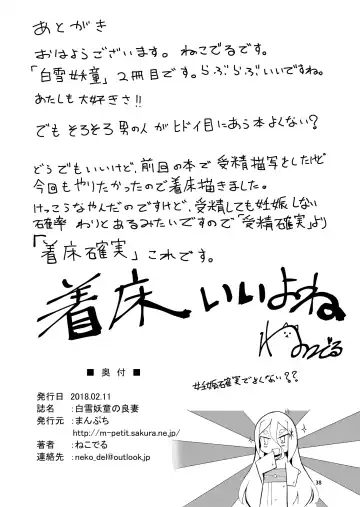 あとがき
おはようございます。ねこでるです。
「白雪妖童」2冊目です。らぶらぶいいですね。
あたしも大好きさ!!
でもそろそろ男の人がヒドイ目にあう本よくない？
どうでもいいけど、前回の本で受精描写をしたけど
今回もやりたかったので着床描きました。
けっこうなやんだのですけど、受精しても妊娠しない
確率わりとあるみたいですので「受精確実」より
「着床確実」これです。
着床いいよね
ねこでる
妊娠確実でよくない??
■ 奥付 ■
発行日 2018.02.11
誌名 :白雪妖童の良妻
発行元 :まんぷち
http://m-petit.sakura.ne.jp/
著者 :ねこでる
連絡先 :neko_del@outlook.jp
38